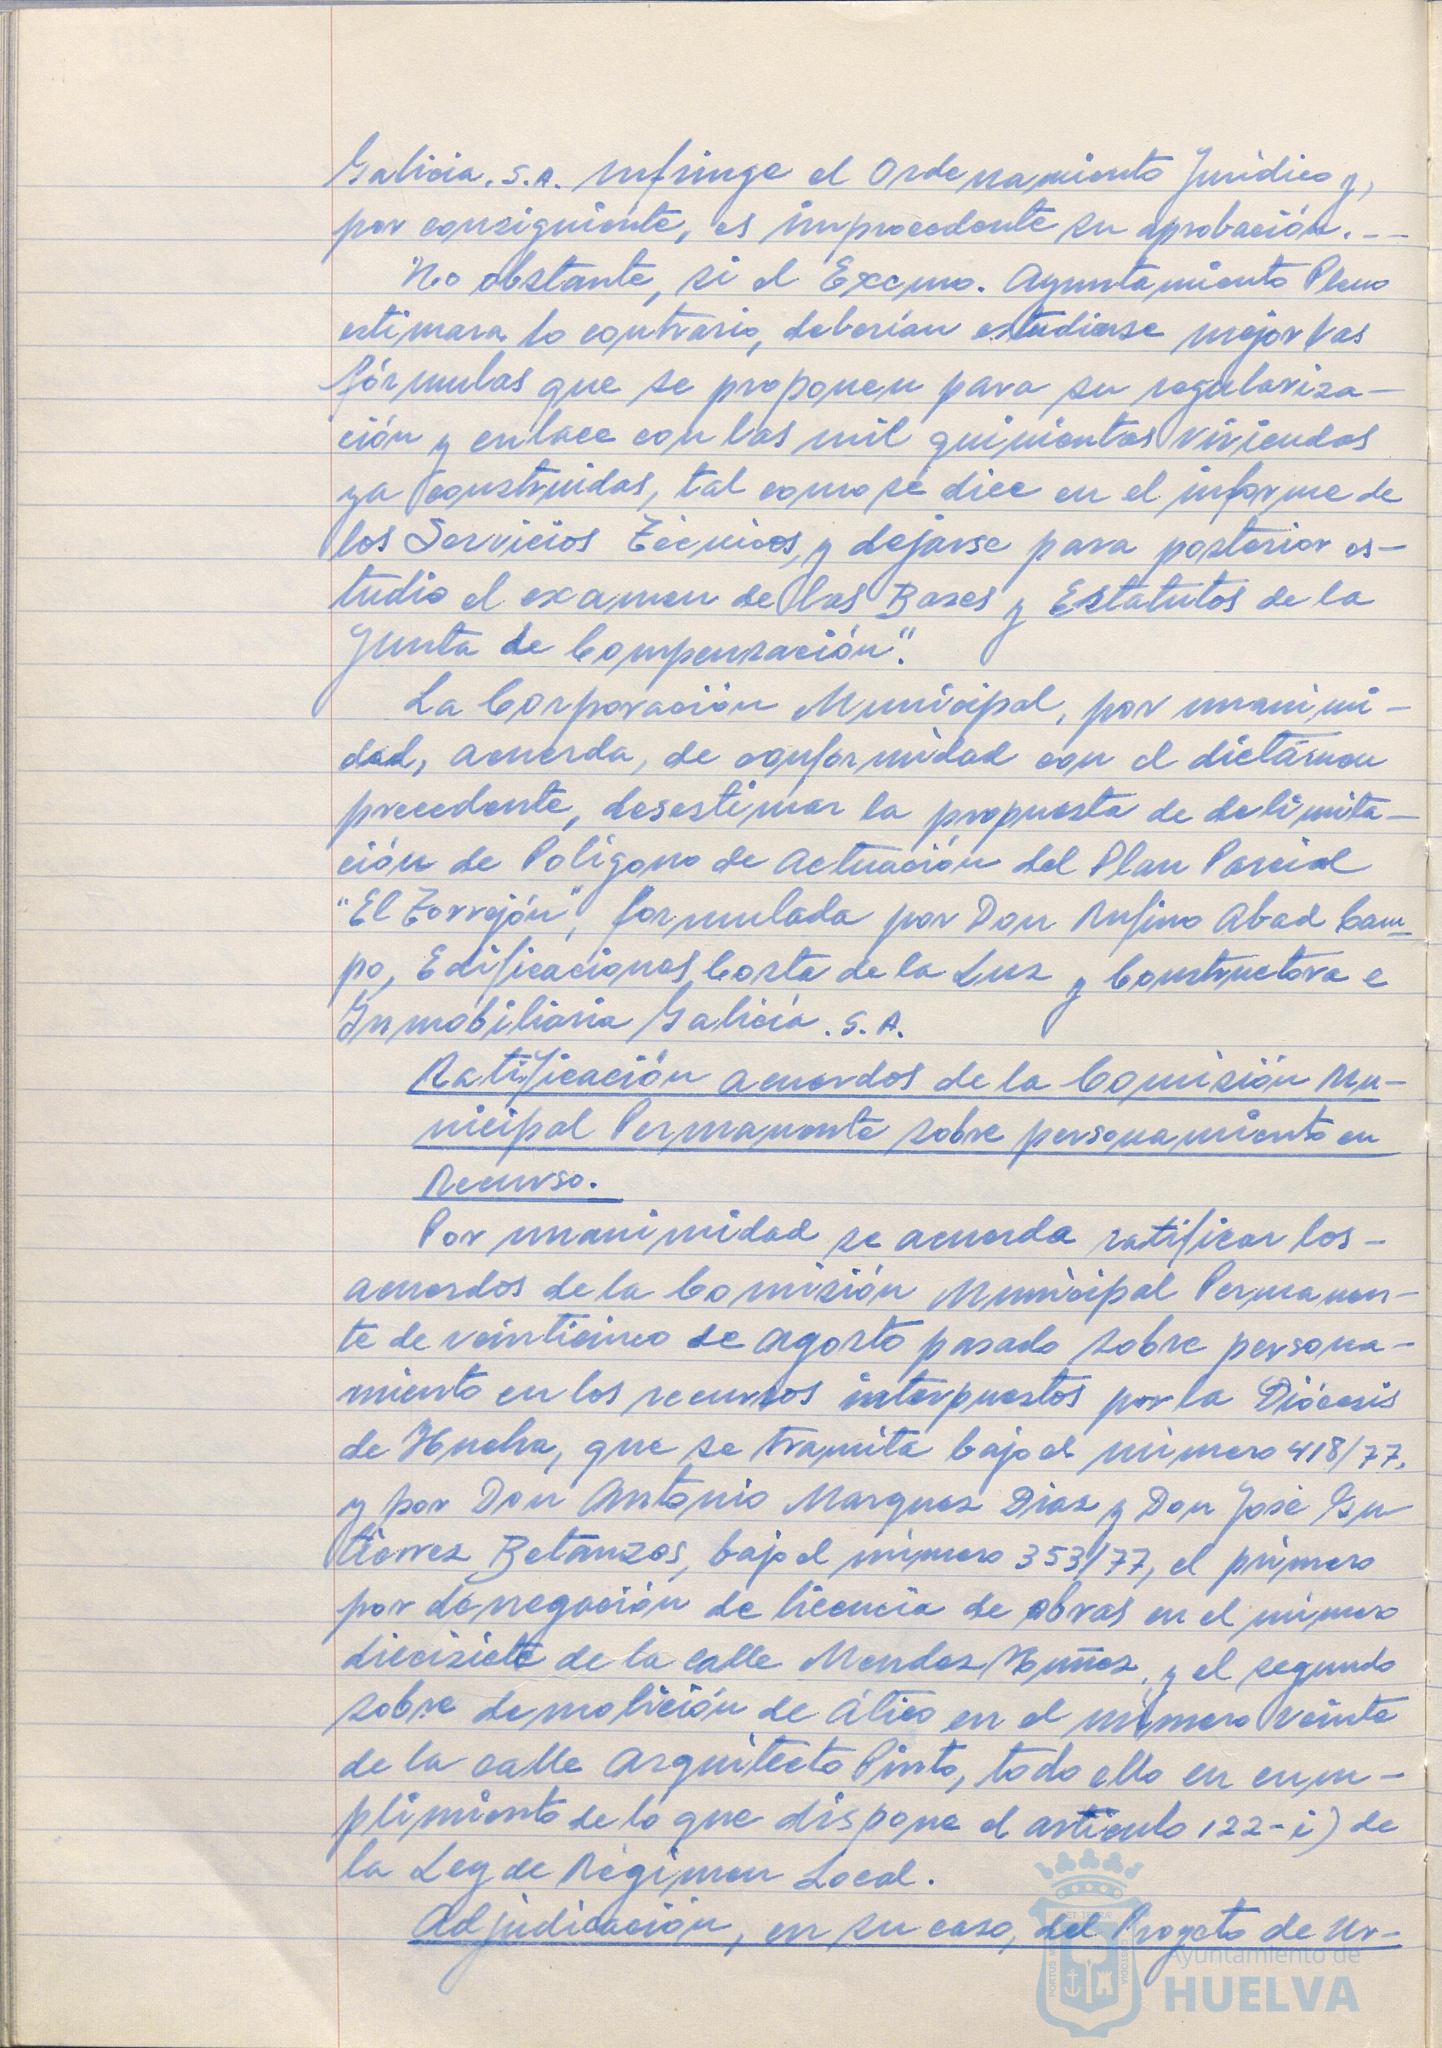 Galicia. S.A. infringe el Ordenamiento Jurídico y,
por consiguiente, es improcedente su aprobación. --
No obstante, si el Excmo. Ayuntamiento Pleno
estimara lo contrario, deberían estudiarse mejor las
fórmulas que se proponen para su regulariza-
ción y enlace con las mil quinientas viviendas
ya construidas, tal como se dice en el informe de
los Servicios Técnicos, y dejarse para posterior es-
tudio el examen de las Bases y Estatutos de la
Junta de Compensación".
La Corporación Municipal, por unanimi-
dad, acuerda, de conformidad con el dictámen
precedente, desestimar la propuesta de delimita-
ción de Polígono de Actuación del Plan Parcial
"El Torrejón", formulada por Don Rufino Abad Cam-
po, Edificaciones Costa de la Luz y Constructora e
Inmobiliaria Galicia. S.A.
Ratificación acuerdos de la Comisión Mu-
nicipal Permanente sobre personamiento en
Recurso.
Por unanimidad se acuerda ratificar los-
acuerdos de la Comisión Municipal Permanen-
te de veinticinco de Agosto pasado sobre persona-
miento en los recursos interpuestos por la Diócesis
de Huelva, que se tramita bajo el número 418/77,
y por Don Antonio Marquez Diaz y Don José Gu
tierrez Betanzos, bajo el número 353/77, el primero
por denegación de licencia de obras en el número
diecisiete de la calle Mendez Nuñez, y el segundo
sobre demolición de Ático en el número veinte
de la calle Arquitecto Pinto, todo ello en cum-
plimiento de lo que dispone el artículo 122-i) de
la Ley de Régimen Local.
Adjudicación, en su caso, del Proyecto de Ur-
Ayuntamiento de
HUELVA